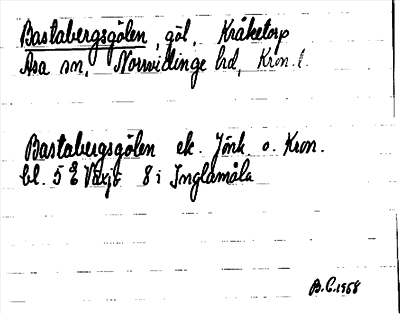 Bastabergsgölen, göl, Kråketorp
Asa sn, Norrvidinge hd, Kron. l.
Bastabergsgölen ek. Jönk. o. Kron.
bl. 5 Växjö 8 i Inglamåla
B.C. 1958